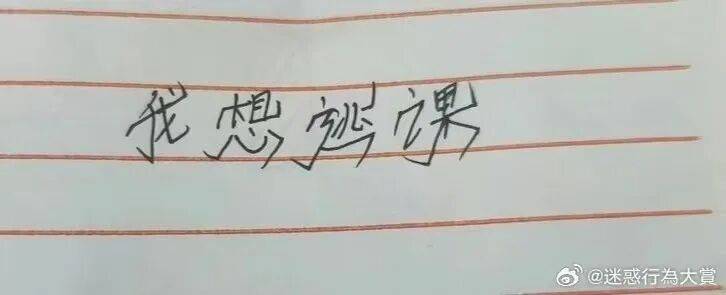 我想逃课
@迷惑行為大賞